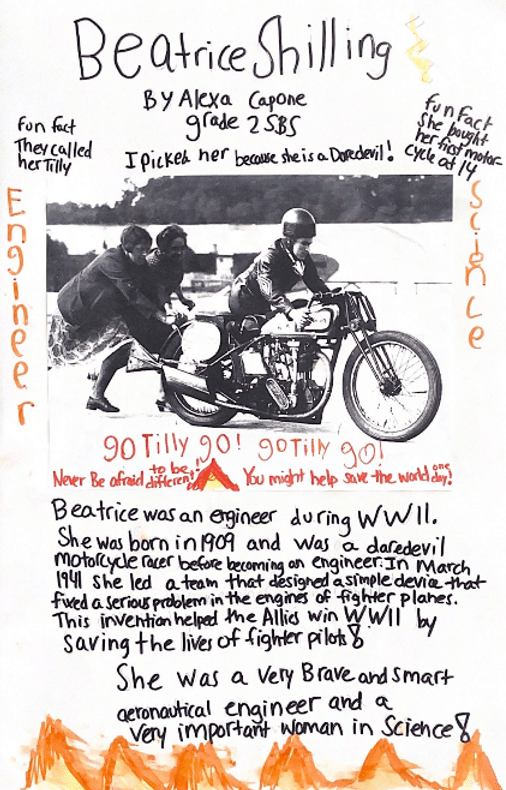 Beatrice Shilling
By Alexa Capone
grade 2 SBS
fun fact
They called
her Tilly
fun fact
She bought
her first motor
cycle at 14
I picked her because she is a Daredevil!
Engineer
Science
go Tilly go! go Tilly go!
Never Be afraid to be different! You might help save the world one day!
Beatrice was an engineer during WWII.
She was born in 1909 and was a daredevil
motorcycle racer before becoming an engineer. In March
1941 she led a team that designed a simple device that
fixed a serious problem in the engines of fighter planes.
This invention helped the Allies win WWII by
saving the lives of fighter pilots!
She was a very Brave and smart
aeronautical engineer and a
very important woman in Science!